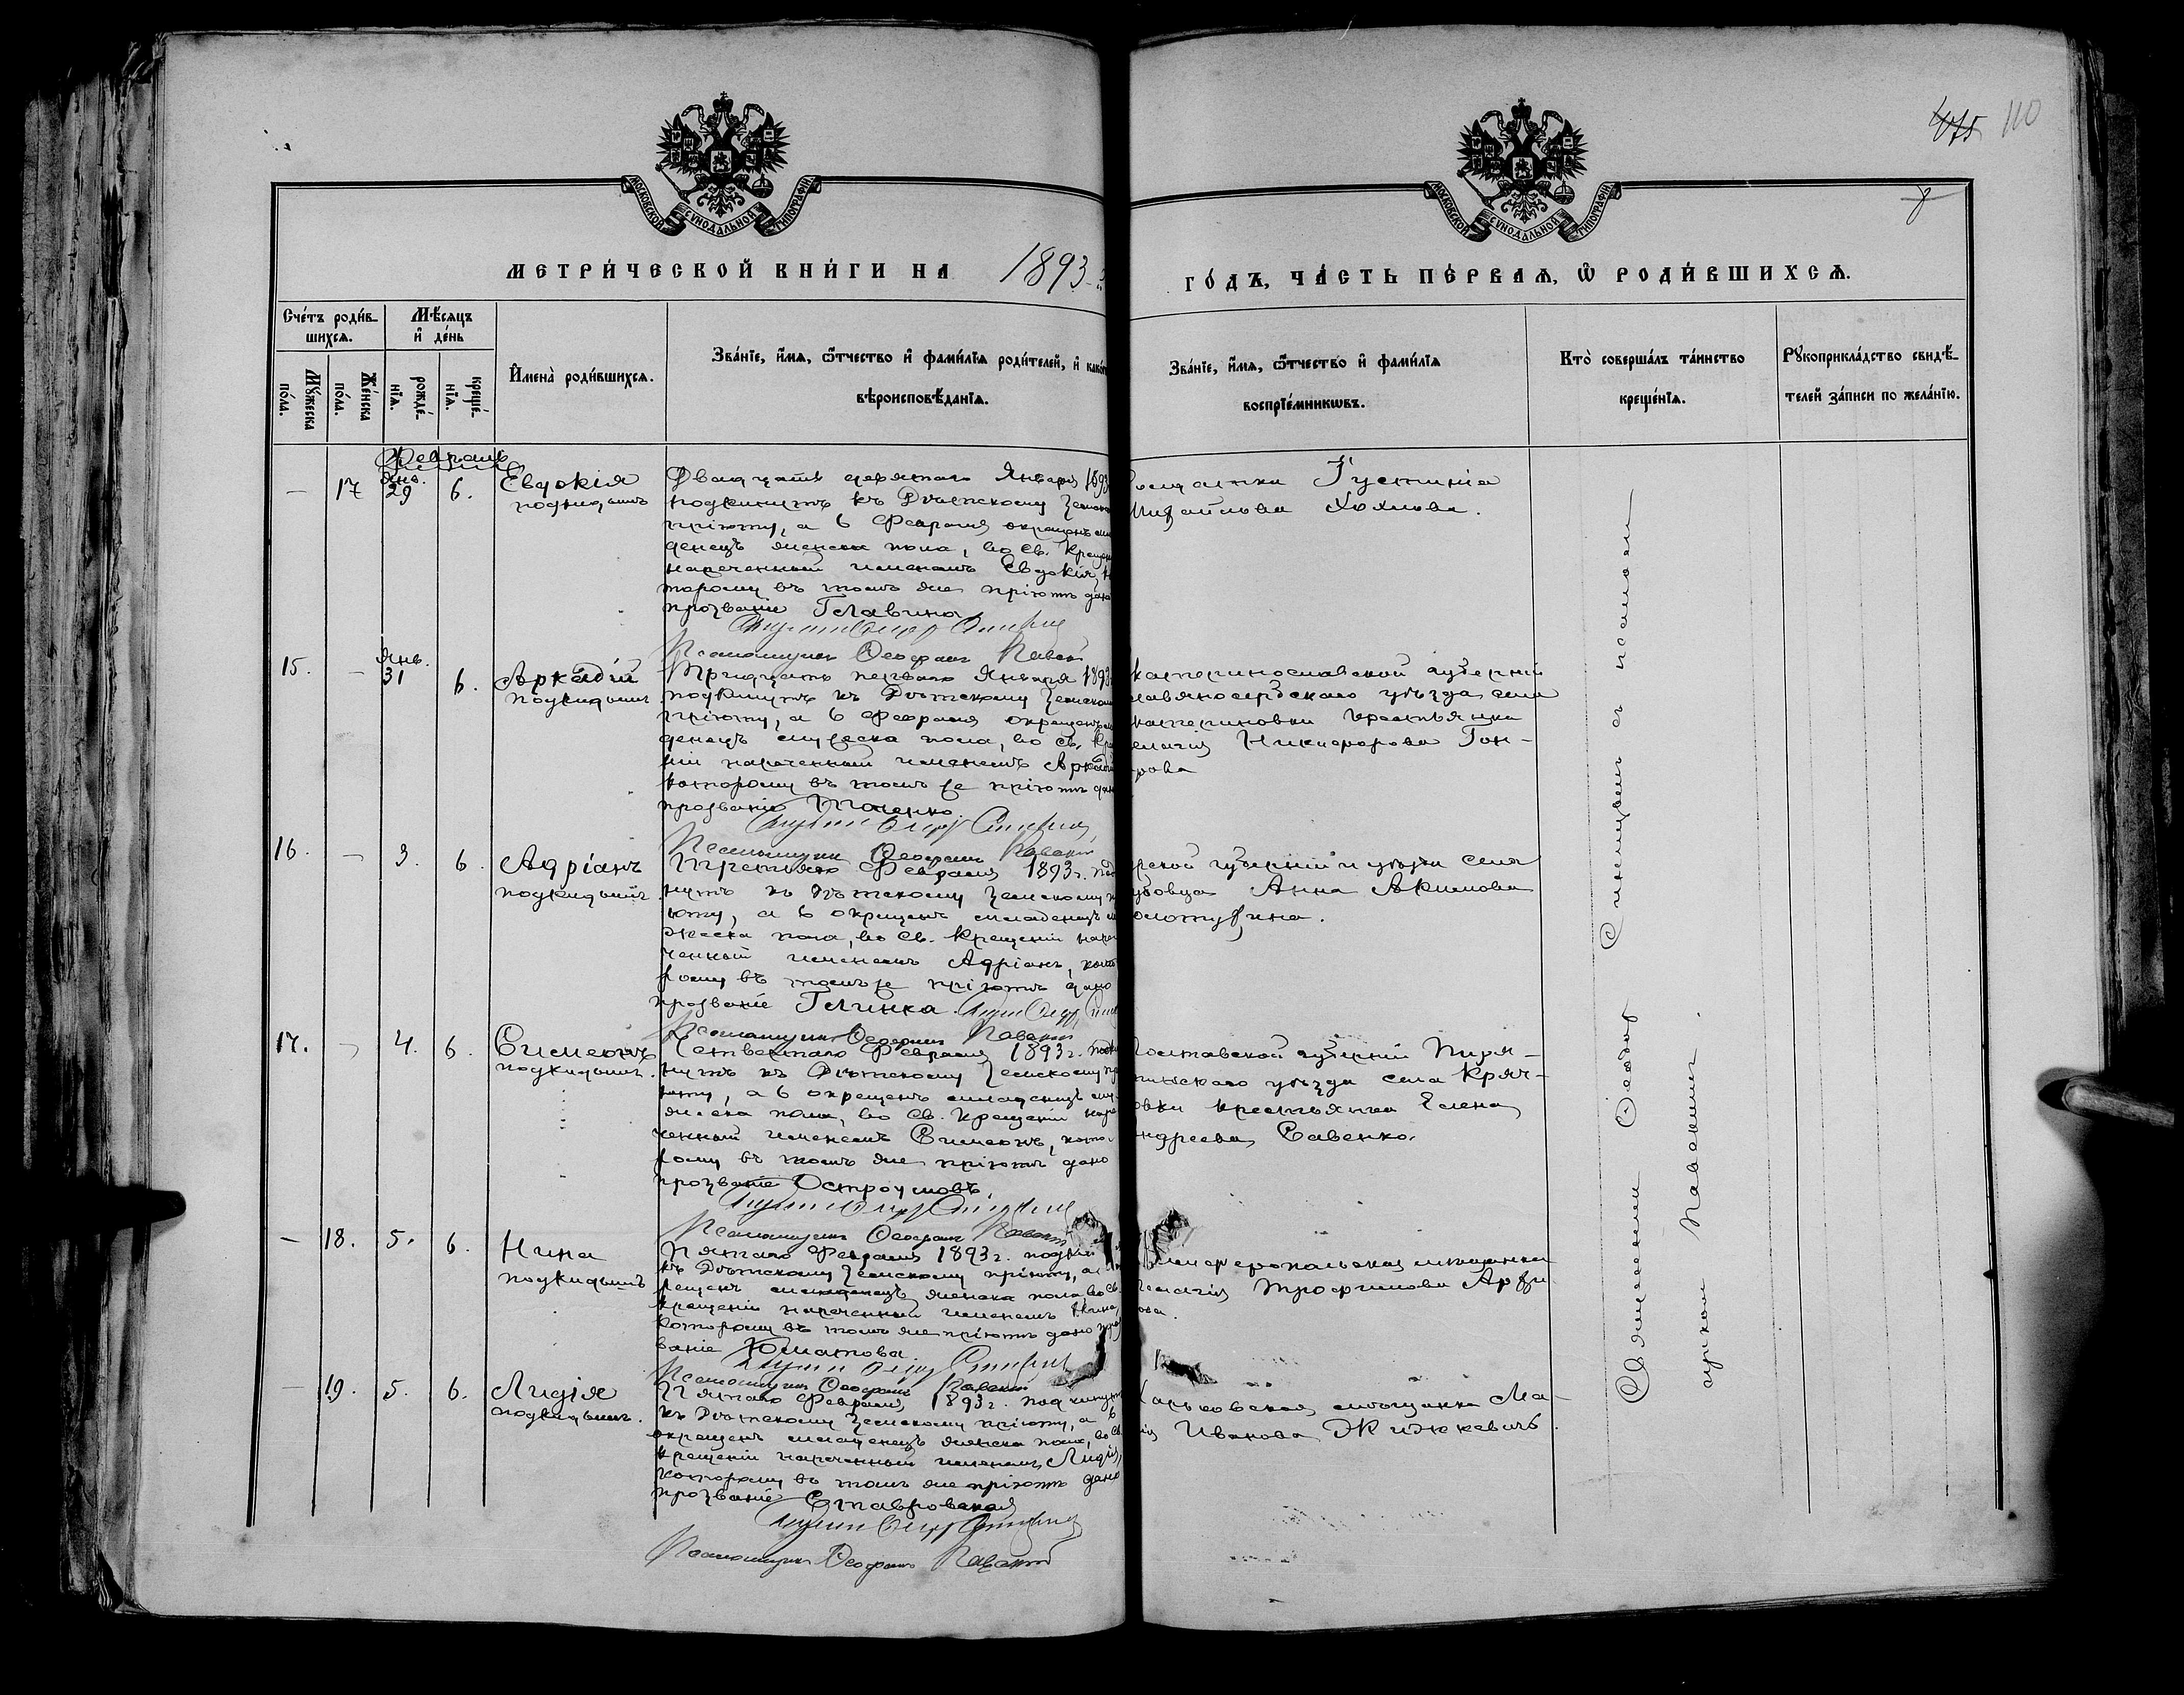 475 110
8
МОСКОВСКОЙ СѴНОДАЛЬНОЙ ТИПОГРАФІИ
МОСКОВСКОЙ СѴНОДАЛЬНОЙ ТИПОГРАФІИ
МЕТРИ́ЧЕСКОЙ КНИ́ГИ НА 1893-й
ГО́ДЪ, ЧА́СТЬ ПЕ́РВАѦ, Ѽ РОДИ́ВШИХСѦ.
Сче́тъ роди́в-
шихсѧ.
Мѣ́сѧцъ
и҆ де́нь
Мꙋ́жеска
по́ла.
Же́нска
по́ла.
рожде́-
нїѧ.
креще́-
нїѧ.
И҆мена̀ роди́вшихсѧ.
Зва́нїе, и҆́мѧ, ѻ҆́тчество и҆ фами́лїѧ роди́телей, и҆
вѣроисповѣ́данїѧ.
Зва́нїе, и҆́мѧ, ѻ҆́тчество и҆ фами́лїѧ
воспрїе́мникѡвъ.
Кто̀ совершáлъ та́инство
креще́нїѧ.
Рꙋкоприкла́дство свидѣ́-
телей за́писи по жела́нїю.
Февраль
— 17 Янв. 29 6. Евдокія
подкидышъ
Двадцать девятаго Января 1893
подкинутъ къ Дѣтскому Земск
пріюту, а 6 Февраля окрещенъ мла
денецъ женска пола, во св. Креще
нареченный именемъ Евдокія, к
торому въ томъ же пріютѣ дано
прозваніе Главина
Псаломщикъ Ѳеофанъ
Густинія
Михайлова Хохлова.
15. — Янв. 31 6. Аркадій
подкидышъ
Тридцать перваго Января 1893
подкинутъ къ Дѣтскому Земском
пріюту, а 6 Февраля окрещенъ мла
денецъ мужеска пола, во св. Кре
ніи нареченный именемъ Аркадій
которому въ томъ же пріютѣ дан
прозваніе
Псаломщикъ Ѳеофанъ
катеринославской губерніи
лавяносербскаго уѣзда села
катериновки крестьянка
елагія Никифорова Гон-
рова
16. — 3. 6. Адріанъ
подкидышъ
Третьяго Февраля 1893 г. под
нутъ къ Дѣтскому Земскому п
юту, а 6 окрещенъ младенецъ м
жеска пола, во св. Крещеніи наре
ченный именемъ Адріанъ, кото
рому въ томъ же пріютѣ дано
прозваніе Глинка.
Псаломщикъ Ѳеофанъ
рской губерніи и уѣзда села
убовца Анна Акимова
олотухина.
17. — 4. 6. Симеонъ
подкидышъ.
Четвертаго Февраля 1893 г. подки
нутъ къ Дѣтскому Земскому прі
юту, а 6 окрещенъ младенецъ му-
жеска пола, во св. Крещеніи наре
ченный именемъ Симеонъ, кото-
рому въ томъ же пріютѣ дано
прозваніе Остроумовъ.
Псаломщикъ Ѳеофанъ
Полтавской губерніи Пиря-
тинскаго уѣзда села Кряч-
овки крестьянка Елена
ндреева Савенко.
— 18. 5. 6. Нина
подкидышъ
Пятаго Февраля 1893 г. подки
къ Дѣтскому Земскому пріюту, а
рещенъ младенецъ женска пола, во св.
крещеніи нареченный именемъ Нина,
которому въ томъ же пріютѣ дано проз
ваніе Юматова.
Псаломщикъ Ѳеофанъ
имферопольская мѣщанка
елагія Трофимова
ова.
— 19. 5. 6. Лидія
подкидышъ.
Пятаго Февраля 1893 г. подкинут
къ Дѣтскому Земскому пріюту, а 6
окрещенъ младенецъ женска пола, во св.
крещеніи нареченный именемъ Лидія,
которому въ томъ же пріютѣ дано
прозваніе Ставровская
Псаломщикъ Ѳеофанъ
Харьковская мѣщанка Ма-
рія Иванова Жижкевичъ.
Священникъ Ѳеодоръ съ псаломщикомъ